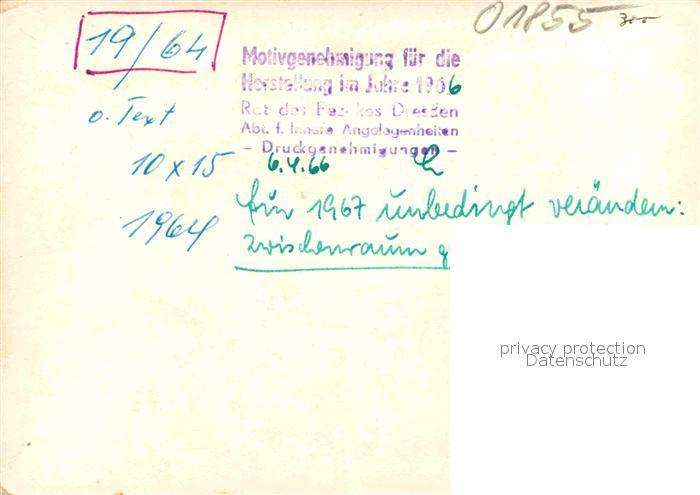 01855
19/64
Motivgenehmigung für die
Herstellung im Jahre 1966
Rat des Bezirkes Dresden
Abt. f. Innere Angelegenheiten
o. Text
– Druckgenehmigungen –
10 x 15
6.4.66
für 1967 unbedingt verändern:
1964
zwischenraum g
privacy protection
Datenschutz